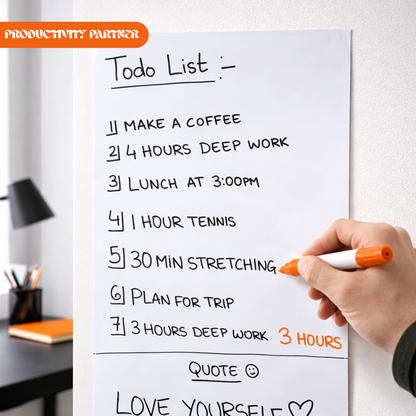 PRODUCTIVITY PARTNER
Todo List :-
1] MAKE A COFFEE
2] 4 HOURS DEEP WORK
3] LUNCH AT 3:00PM
4] 1 HOUR TENNIS
5] 30 MIN STRETCHING
6] PLAN FOR TRIP
7] 3 HOURS DEEP WORK 3 HOURS
QUOTE ☺
LOVE YOURSELF ♡